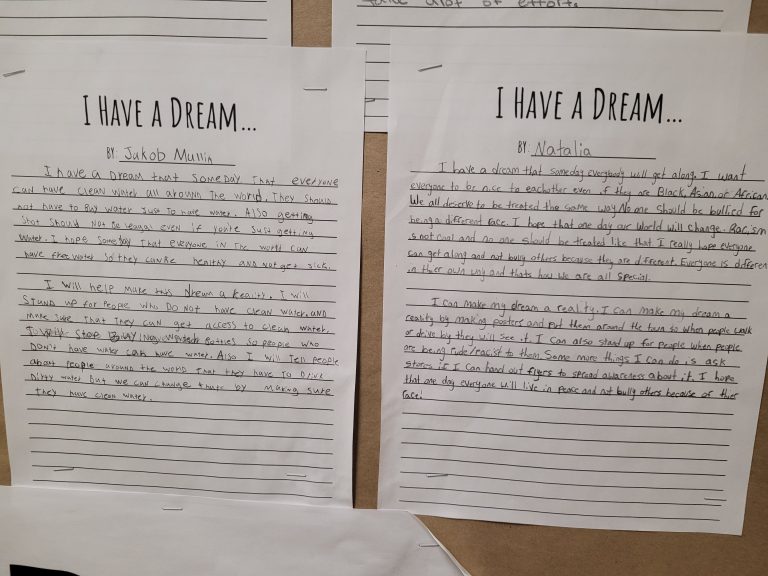 take alot of effort.
I HAVE A DREAM...
BY: Jakob Mullin
I have a dream that someday that everyone
can have clean water all around the world. They should
not have to buy water just to have water. Also getting
shot should not be leagal even if you're just getting
water. I hope someday that everyone in the world can
have free water so they can be healthy and not get sick.
I will help make this dream a reality. I will
stand up for people who do not have clean water. and
make sure that they can get access to clean water.
Stop Buying Water Bottles so people who
Don't have water can have water. Also I will tell people
about people around the world that they have to drink
Dirty water but we can change that by making sure
they have clean water.
I HAVE A DREAM...
BY: Natalia
I have a dream that someday everybody will get along. I want
everyone to be nice to eachother even if they are Black, Asian, or African.
We all deserve to be treated the same way No one should be bullied for
being a different race. I hope that one day our world will change. Racism
is not cool and no one should be treated like that I really hope everyone
can get along and not bully others because they are different. Everyone is different
in their own way and thats how we are all special.
I can make my dream a reality. I can make my dream a
reality by making posters and put them around the town so when people walk
or drive by they will see it. I can also stand up for people when people
are being rude/racist to them. Some more things I can do is ask
stores if I can hand out flyers to spread awareness about it. I hope
that one day everyone will live in peace and not bully others because of thier
race!